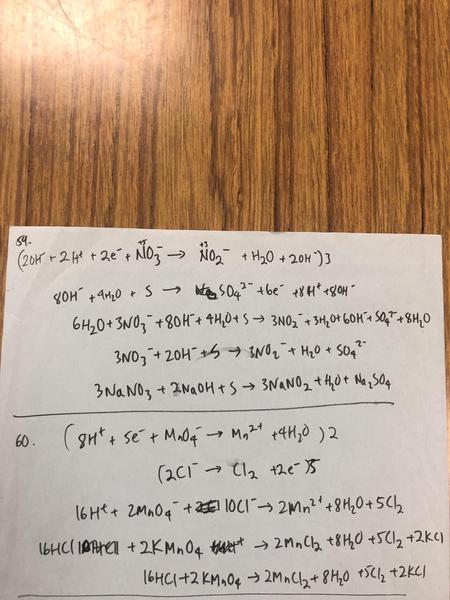 59.
(2OH⁻ + 2H⁺ + 2e⁻ + N⁺⁵O₃⁻ → N⁺³O₂⁻ + H₂O + 2OH⁻)3
8OH⁻ + 4H₂O + S → SO₄²⁻ + 6e⁻ + 8H⁺ + 8OH⁻
6H₂O + 3NO₃⁻ + 8OH⁻ + 4H₂O + S → 3NO₂⁻ + 3H₂O + 6OH⁻ + SO₄²⁻ + 8H₂O
3NO₃⁻ + 2OH⁻ + S → 3NO₂⁻ + H₂O + SO₄²⁻
3NaNO₃ + 2NaOH + S → 3NaNO₂ + H₂O + Na₂SO₄
60. (8H⁺ + 5e⁻ + MnO₄⁻ → Mn²⁺ + 4H₂O)2
(2Cl⁻ → Cl₂ + 2e⁻)5
16H⁺ + 2MnO₄⁻ + 10Cl⁻ → 2Mn²⁺ + 8H₂O + 5Cl₂
16HCl + 2KMnO₄ → 2MnCl₂ + 8H₂O + 5Cl₂ + 2KCl
16HCl + 2KMnO₄ → 2MnCl₂ + 8H₂O + 5Cl₂ + 2KCl